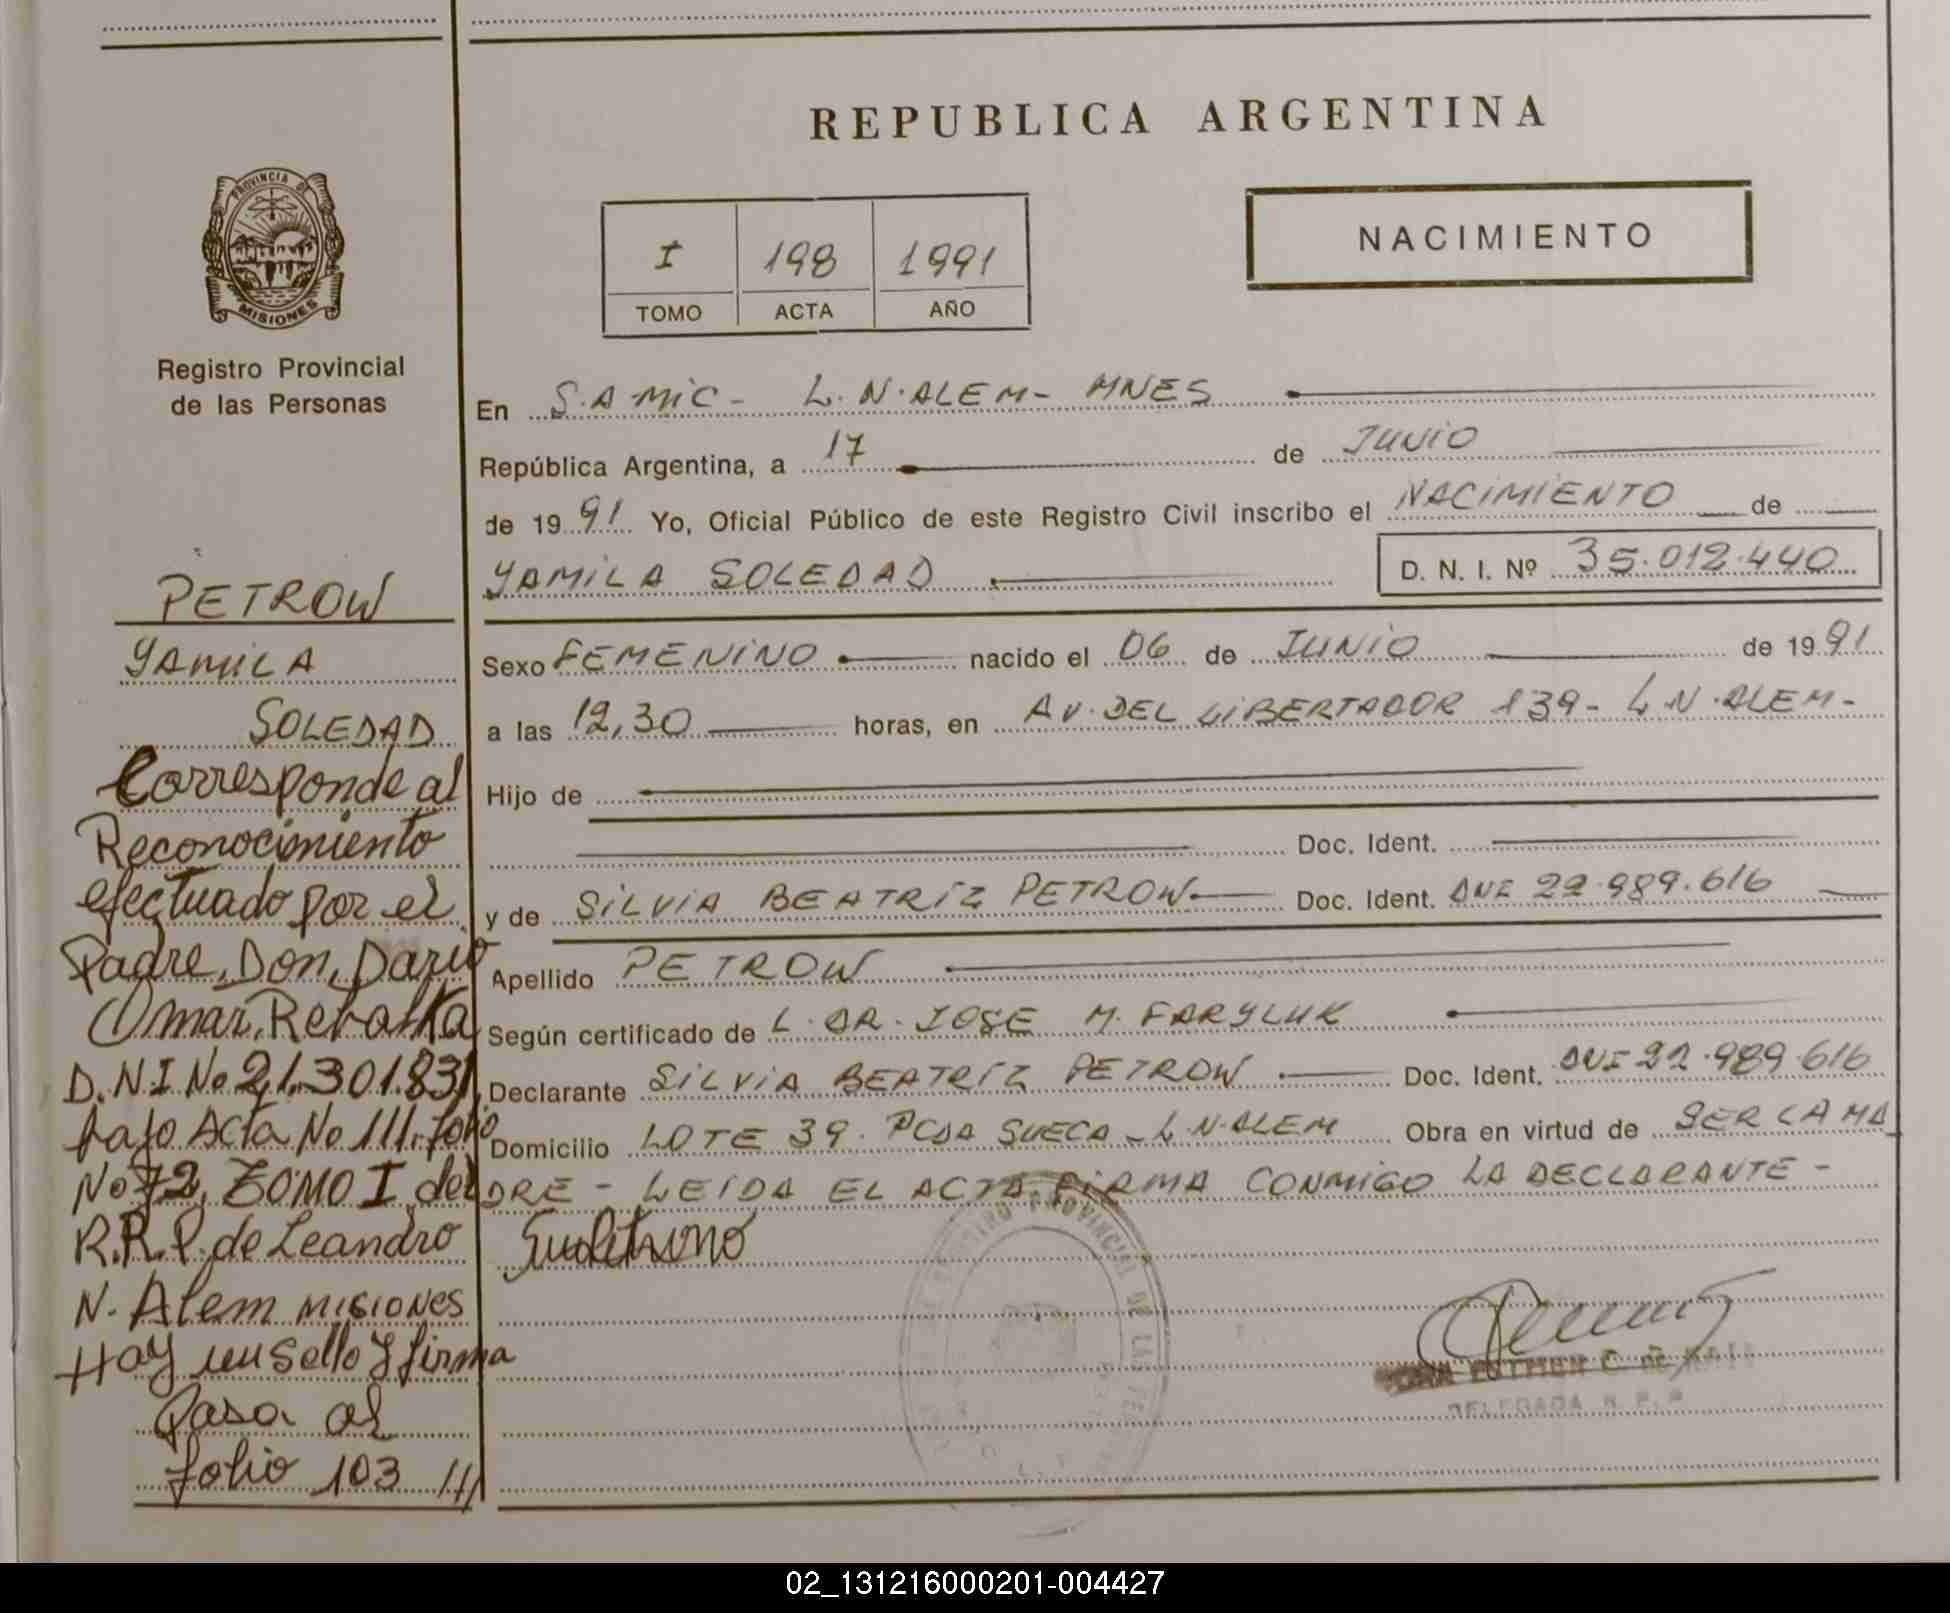 REPUBLICA ARGENTINA
PROVINCIA DE
MISIONES
Registro Provincial
de las Personas
I 198 1991
TOMO ACTA AÑO
NACIMIENTO
En S.A.MIC - L.N.ALEM - MNES
República Argentina, a 17 de JUNIO
de 1991 Yo, Oficial Público de este Registro Civil inscribo el NACIMIENTO de
YAMILA SOLEDAD D. N. I. Nº 35.012.440
Sexo FEMENINO nacido el 06 de JUNIO de 1991
a las 12,30 horas, en AV. DEL LIBERTADOR 139 - L N. ALEM -
Hijo de
Doc. Ident.
y de SILVIA BEATRIZ PETROW Doc. Ident. DNI 22.989.616
Apellido PETROW
Según certificado de L. DR. JOSE M. FARYLUK
Declarante SILVIA BEATRIZ PETROW Doc. Ident. DNI 22.989.616
Domicilio LOTE 39. PCDA SUECA - L.N.ALEM Obra en virtud de SER LA MA
DRE - LEIDA EL ACTA FIRMA CONMIGO LA DECLARANTE -
REGISTRO PROVINCIAL DE LAS PER
DELEGADA R. P. P.
PETROW
YAMILA
SOLEDAD
Corresponde al
Reconocimiento
efectuado por el
Padre, Don, Dario
Omar,
D.N.I No 21.301.831
bajo Acta No 111. folio
No 72, TOMO I del
R.R.P. de Leandro
N. Alem MISIONES
Hay un Sello y firma
Pasa al
folio 103 //
02_131216000201-004427